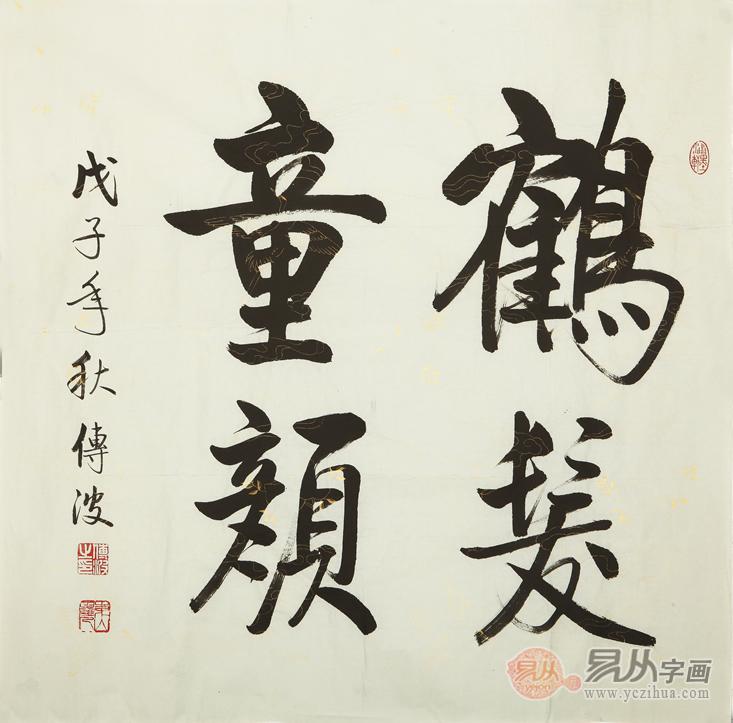 鶴髮
童顏
戊子年秋傳波
傳波之印
易从
易从字画
www.yczihua.com